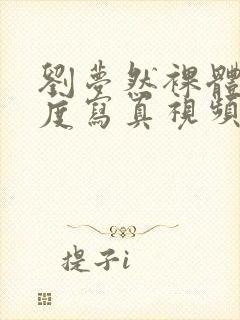 劉夢然裸體
度寫真視頻
提子i